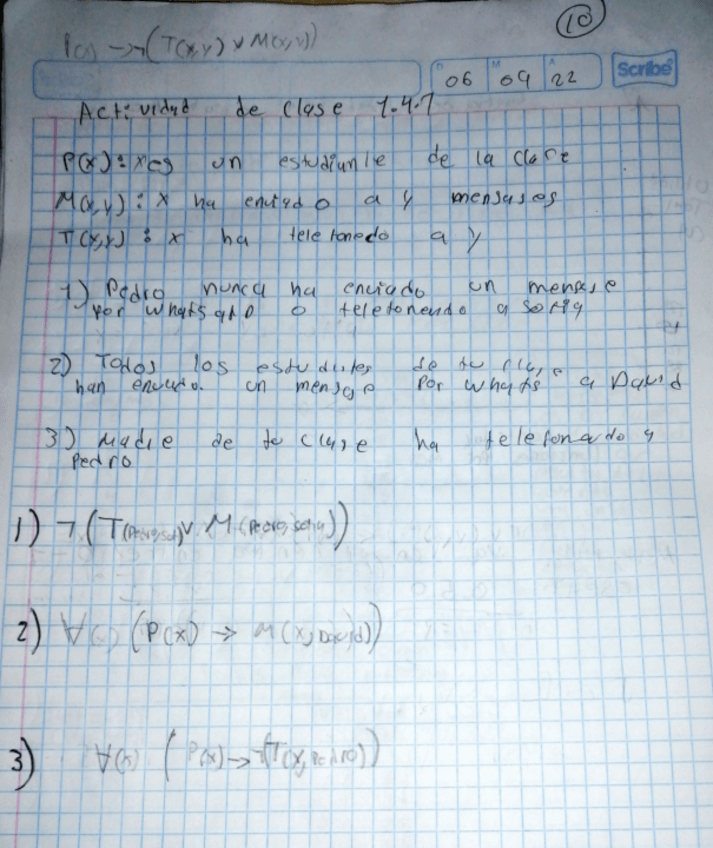 10
P(x) → ¬(T(x,y) ∨ M(x,y))
D M A
06 09 22
Scribe
Actividad de clase 1.4.1
P(x): x es un estudiante de la clase
M(x,y): x ha enviado a y mensajes
T(x,y): x ha telefonedo a y
1) Pedro nunca ha enviado un mensaje
por whatsapp o telefoneado a Sofia
2) Todos los estudiantes de tu clase
han enviado un mensaje por whats a David
3) Nadie de tu clase ha telefonado a
Pedro
1) ¬(T(Pedro,Sof) ∨ M(Pedro,Sofia))
2) ∀(x) (P(x) → M(x,David))
3) ∀(x) (P(x) → ¬(T(x,Pedro))